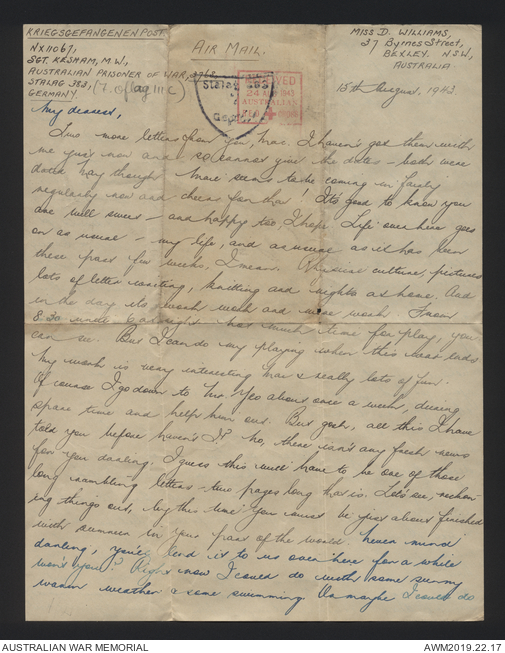 KRIEGSGEFANGENEN POST.
NX11067,
SGT. KESHAM, M.W.,
AUSTRALIAN PRISONER OF WAR, 3765,
STALAG 383,
GERMANY.
(7. oflag III C)
AIR MAIL.
Stalag 383
Geprüft
24 1943
AUSTRALIAN
MISS D. WILLIAMS,
37 Byrnes Street,
BEXLEY. N.S.W,
AUSTRALIA.
15th August, 1943
My dearest,
Two more letters from you, Mac. I haven't got them with
me just now and so cannot give the dates - both were
dated May though. Mail seems to be coming in fairly
regularly now and cheers for that! It's good to know you
are well sweet - and happy too, I hope. Life over here goes
on as usual - my life, and as usual as it has been
these past few weeks, I mean. Physical culture, pictures
lots of letter writing, knitting and nights at home. And
in the day its work work and more work. From
8.30 until 6 at night has much time for play, you
can see. But I can do my playing when this war ends
My work is very interesting Mac & really lots of fun.
Of course I go down to Mr. Yeo about once a week, during
spare time and help him out. But gosh, all this I have
told you before haven't I? No, there isn't any fresh news
for you darling. I guess this will have to be one of those
long rambling letters - two pages long that is. Let's see, reckon-
ing things out, by this time you must be just about finished
with summer in your part of the world. Never mind
darling, you'll lend it to us over here for a while
won't you? Right now I could do with some sunny
warm weather & some swimming. Or maybe I could do
AUSTRALIAN WAR MEMORIAL
AWM2019.22.17